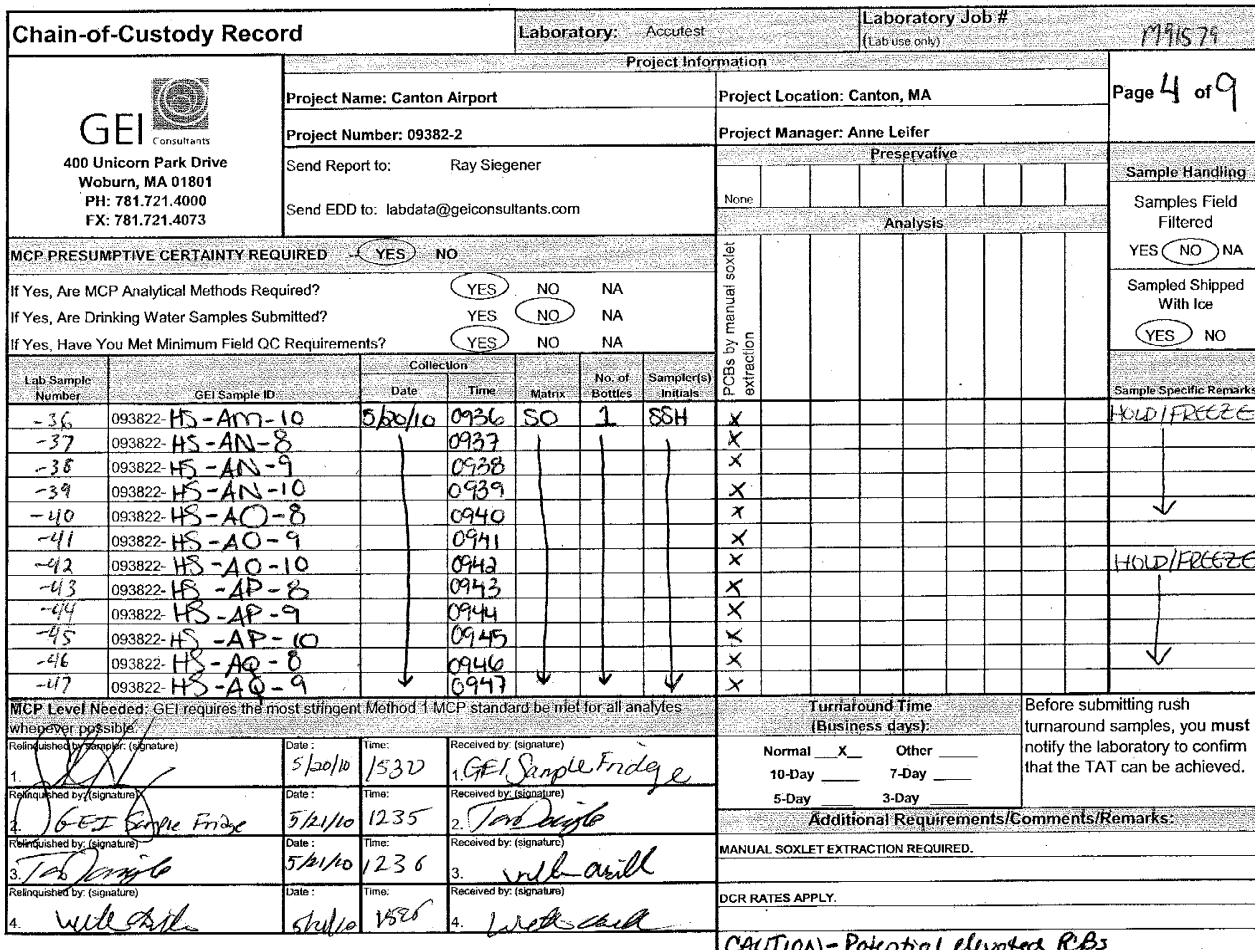 Chain-of-Custody Record
Laboratory: Accutest
Laboratory Job #
(Lab use only)
M91579
Project Information
GEI Consultants
400 Unicorn Park Drive
Woburn, MA 01801
PH: 781.721.4000
FX: 781.721.4073
Project Name: Canton Airport
Project Location: Canton, MA
Page 4 of 9
Project Number: 09382-2
Project Manager: Anne Leifer
Send Report to: Ray Siegener
Send EDD to: labdata@geiconsultants.com
Preservative
None
Analysis
PCBs by manual soxlet extraction
Sample Handling
Samples Field
Filtered
YES NO NA
Sampled Shipped
With Ice
YES NO
MCP PRESUMPTIVE CERTAINTY REQUIRED - YES NO
If Yes, Are MCP Analytical Methods Required? YES NO NA
If Yes, Are Drinking Water Samples Submitted? YES NO NA
If Yes, Have You Met Minimum Field QC Requirements? YES NO NA
Lab Sample Number GEI Sample ID Collection Date Time Matrix No. of Bottles Sampler(s) Initials Sample Specific Remarks
-36 093822-HS-AM-10 5/20/10 0936 SO 1 SSH X HOLD/FREEZE
-37 093822-HS-AN-8 0937 X
-38 093822-HS-AN-9 0938 X
-39 093822-HS-AN-10 0939 X
-40 093822-HS-AO-8 0940 X
-41 093822-HS-AO-9 0941 X
-42 093822-HS-AO-10 0942 X HOLD/FREEZE
-43 093822-HS-AP-8 0943 X
-44 093822-HS-AP-9 0944 X
-45 093822-HS-AP-10 0945 X
-46 093822-HS-AQ-8 0946 X
-47 093822-HS-AQ-9 0947 X
MCP Level Needed: GEI requires the most stringent Method 1 MCP standard be met for all analytes
whenever possible.
Relinquished by sampler: (signature) Date: Time: Received by: (signature)
1. 5/20/10 1530 1. GEI Sample Fridge
Relinquished by: (signature) Date: Time: Received by: (signature)
2. GEI Sample Fridge 5/21/10 1235 2.
Relinquished by: (signature) Date: Time: Received by: (signature)
3. 5/21/10 1236 3.
Relinquished by: (signature) Date: Time: Received by: (signature)
4. 5/21/10 4.
Turnaround Time
(Business days):
Normal X Other
10-Day 7-Day
5-Day 3-Day
Before submitting rush
turnaround samples, you must
notify the laboratory to confirm
that the TAT can be achieved.
Additional Requirements/Comments/Remarks:
MANUAL SOXLET EXTRACTION REQUIRED.
DCR RATES APPLY.
CAUTION - Potential elevated PCBs